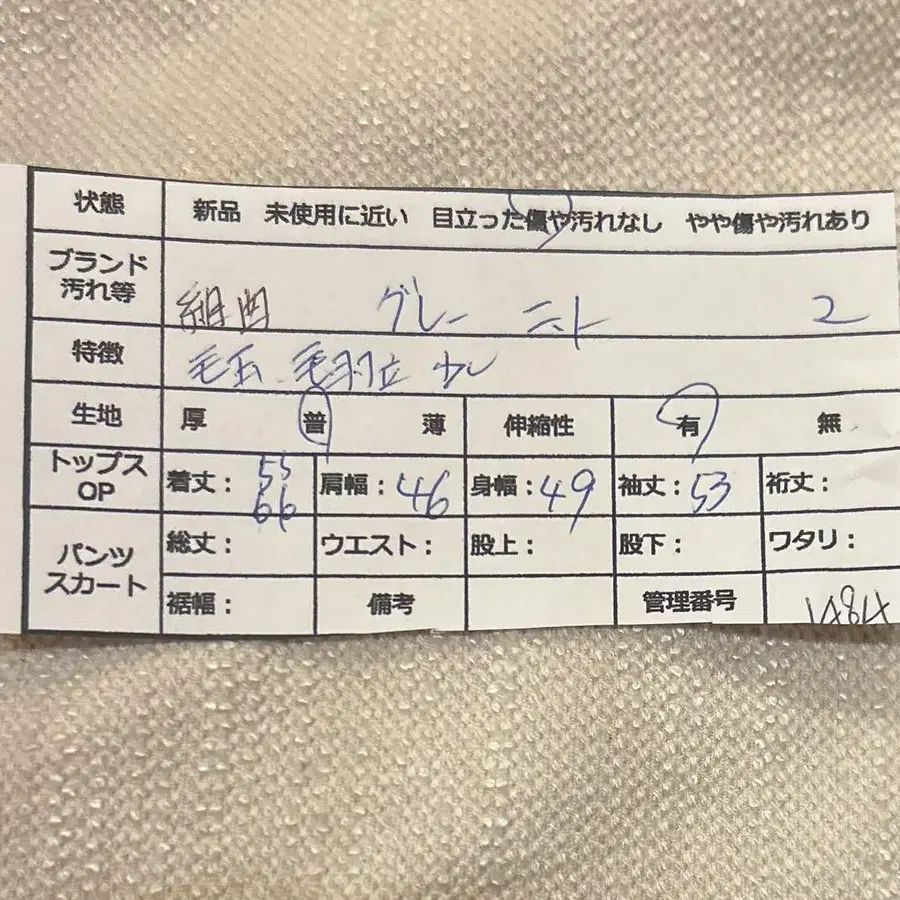 状態 新品 未使用に近い 目立った傷や汚れなし やや傷や汚れあり
ブランド
汚れ等 組曲 グレー ニット 2
特徴 毛玉 毛羽立 少し
生地 厚 普 薄 伸縮性 有 無
トップス
OP 着丈: 55 66 肩幅: 46 身幅: 49 袖丈: 53 裄丈:
パンツ
スカート 総丈: ウエスト: 股上: 股下: ワタリ:
裾幅: 備考 管理番号 1484